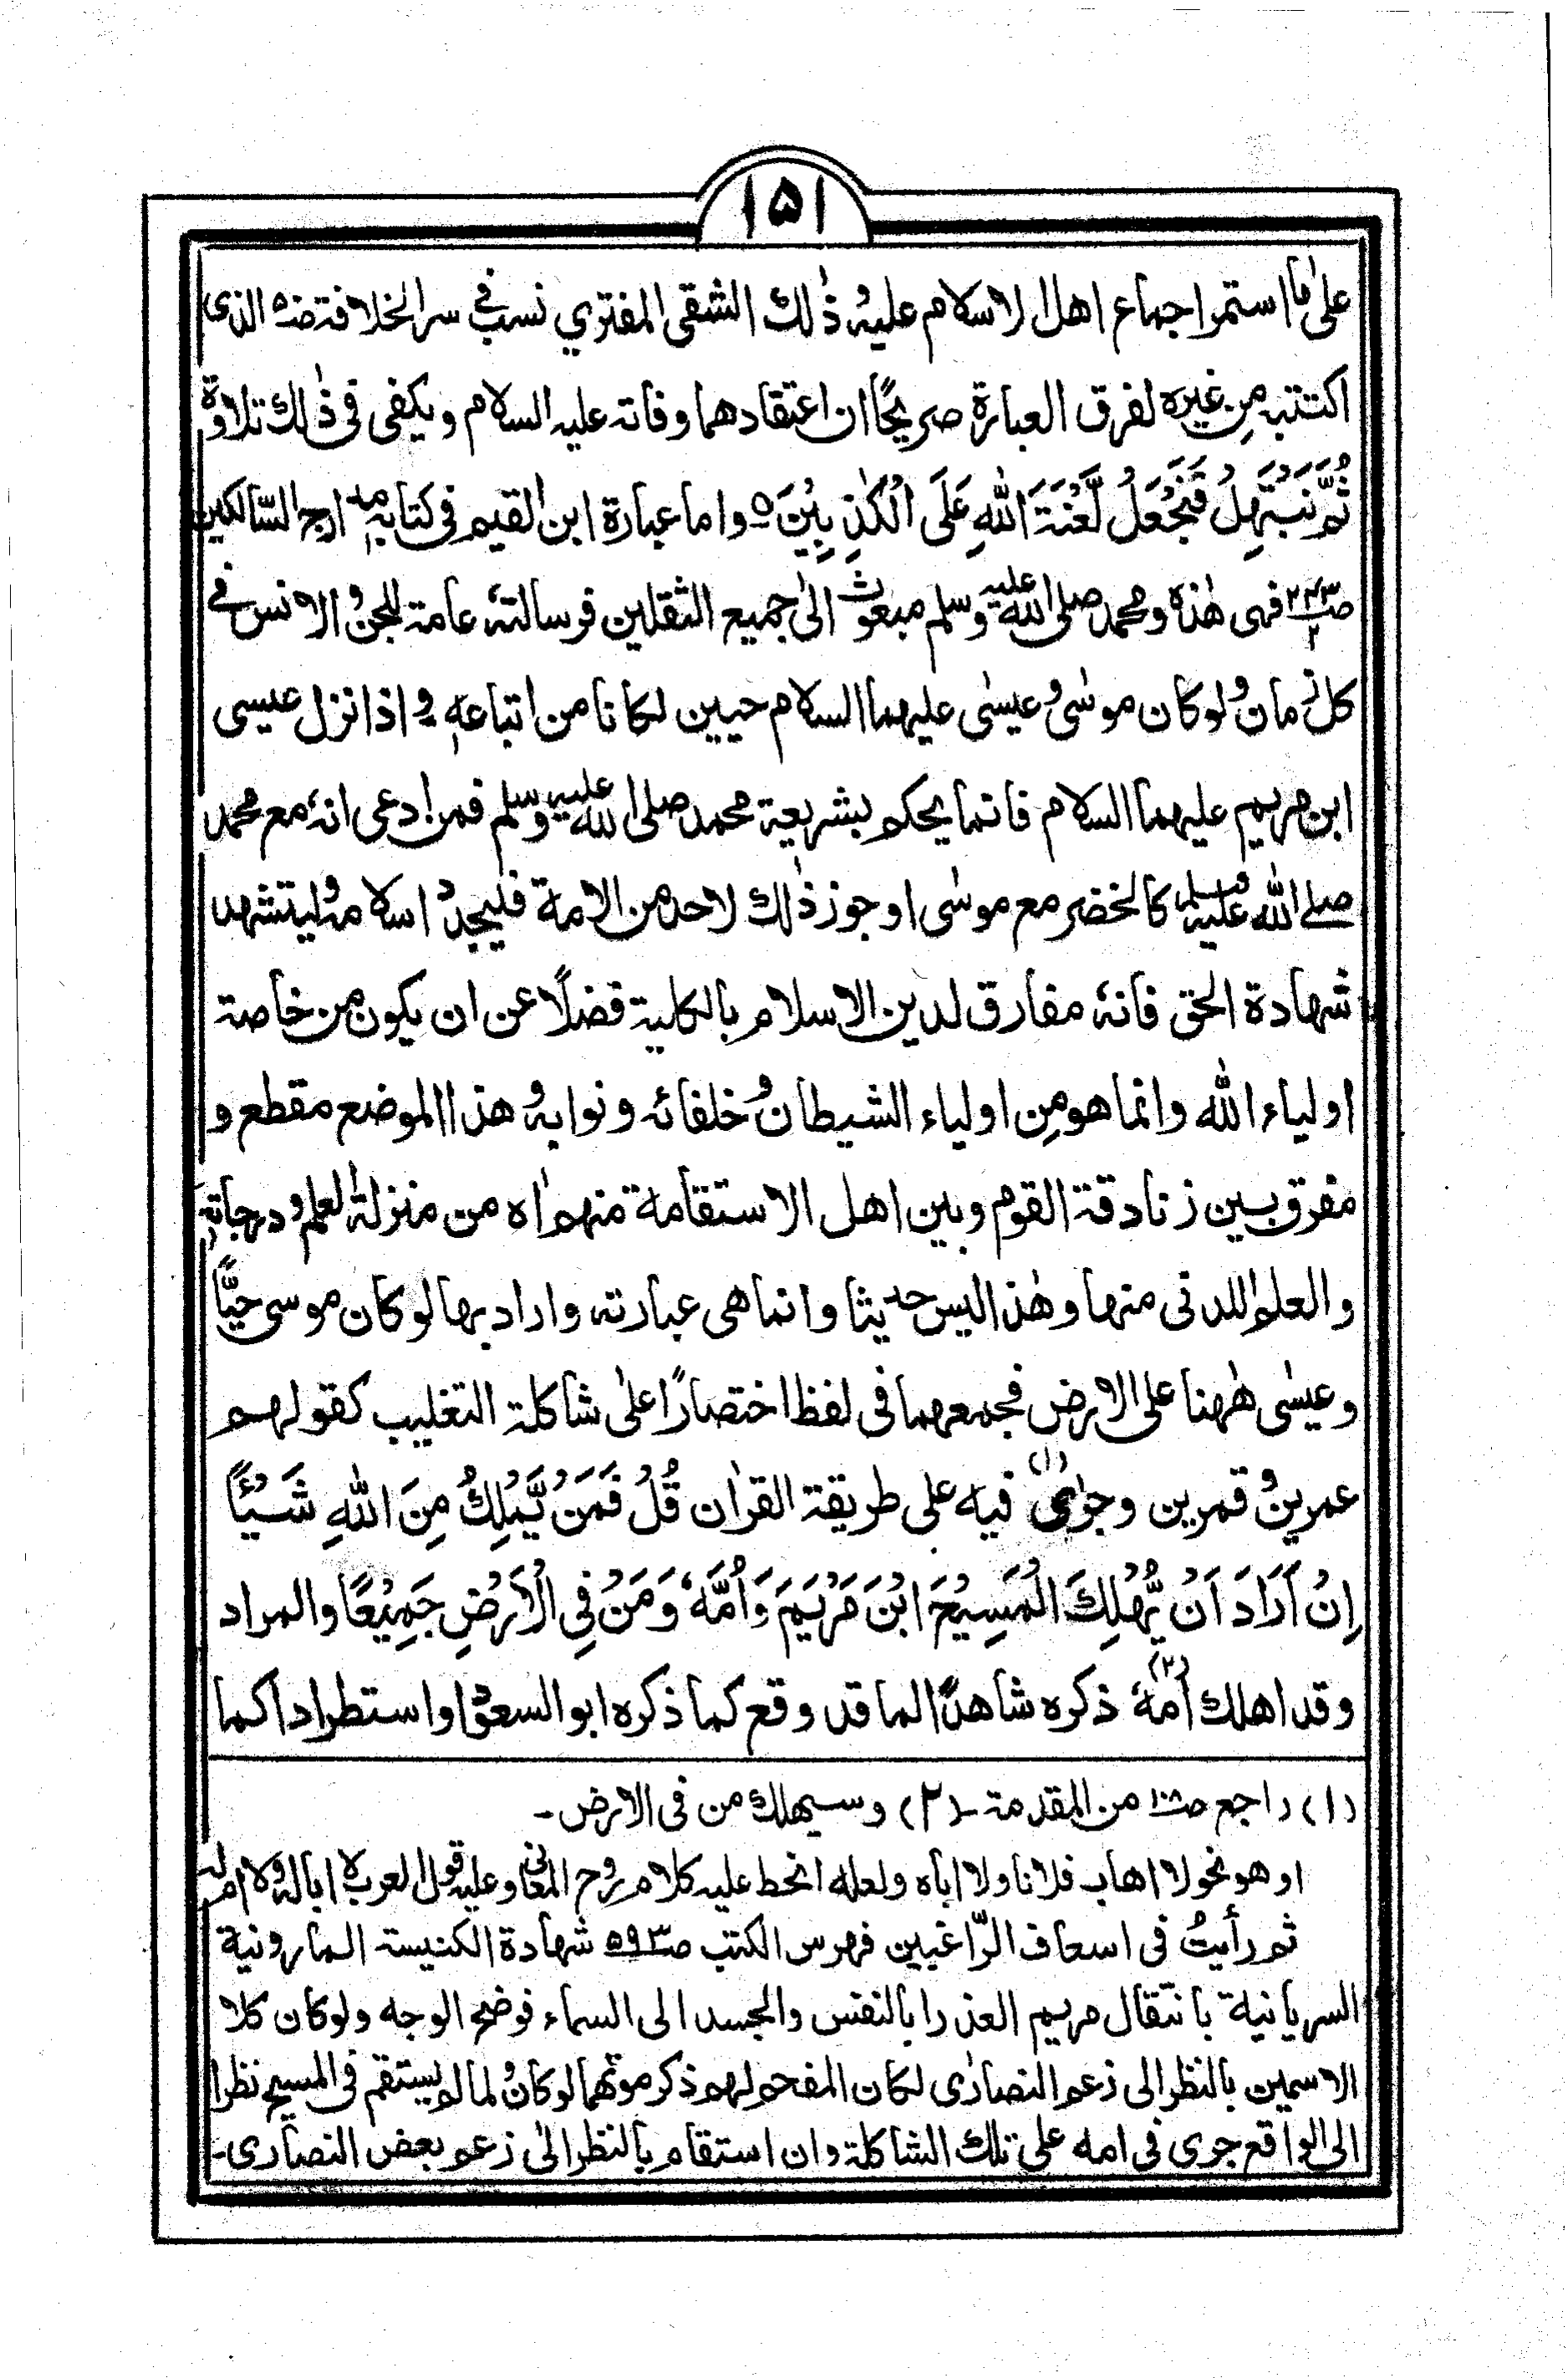 ۱۵۱
علىٰ ما استمر اجماع اهل الاسلام عليه و ذٰلك الشقى المفتري نسب فى سر الخلافة الذى
اكتتبه مِن غيره لفرق العبارة صريحًا ان اعتقادهما وفاته عليه السلام ويكفى فى ذٰلك تلاوة
ثُمَّ نَبْتَهِلْ فَنَجْعَلْ لَّعْنَةَ اللّٰهِ عَلَى الْكٰذِبِيْنَ ۵ واما عبارة ابن القيم فى كتابه مدارج السّالكين
ص۲۴۳ ۲ فهى هٰذه و محمد صلى الله عليه وسلم مبعوث الىٰ جميع الثقلين فرسالتهٗ عامة للجن و الانس فى
كل زمان و لوكان موسٰى و عيسٰى عليهما السلام حيين لكانا من اتباعه و اذا نزل عيسى
ابن مريم عليهما السلام فانما يحكم بشريعة محمد صلى الله عليه وسلم فمن ادعى انهٗ مع محمد
صلے الله عليه وسلم كالخضر مع موسٰى او جوز ذٰلك لاحد من الامة فليجدد اسلامه و ليتشهد
شهادة الحق فانهٗ مفارق لدين الاسلام بالكلية فضلًا عن ان يكون من خاصة
اولياء اللّٰه وانما هو مِن اولياء الشيطان و خلفائه ونوابه و هذا الموضع مقطع و
مفرق بين زنادقة القوم وبين اهل الاستقامة منهم اٰه من منزلة العلم و درجاته
والعلم اللدنى منها وهٰذا ليس حديثا وانما هى عبارته واراد بها لوكان موسى حيًّا
وعيسٰى هٰهنا على الارض فجمعهما فى لفظ اختصارًا علىٰ شاكلة التغليب كقولهم
عمرين و قمرين وجرىٰ (۱) فيه على طريقة القراٰن قُلْ فَمَنْ يَّمْلِكُ مِنَ اللّٰهِ شَيْئًا
اِنْ اَرَادَ اَنْ يُّهْلِكَ الْمَسِيْحَ ابْنَ مَرْيَمَ وَاُمَّهٗ وَمَنْ فِى الْاَرْضِ جَمِيْعًا والمراد
وقد اهلك اُمهٗ (۲) ذكره شاهدًا لما قد وقع كما ذكره ابو السعود او استطرادا كما
(۱) راجع ص۱۰۸ من المقدمة - (۲) و سيهلك من فى الارض -
او هو نحو لا اهاب فلانا ولا اباه ولعله انحط عليه كلام روح المعانى وعليه قول العرب لا ابا له ولا ام له
ثم رأيتُ فى اسعاف الرّاغبين فهرس الكتب ص۵۹۳ شهادة الكنيسة المارونية
السريانية بانتقال مريم العذرا بالنفس والجسد الى السماء فوضح الوجه ولوكان كلا
الاسمين بالنظر الى زعم النصارٰى لكان المفحم لهم ذكر موتهما لوكان و لما لم يستقم فى المسيح نظرا
الى الواقع جرى فى امه على تلك الشاكلة وان استقام بالنظر الىٰ زعم بعض النصارى-